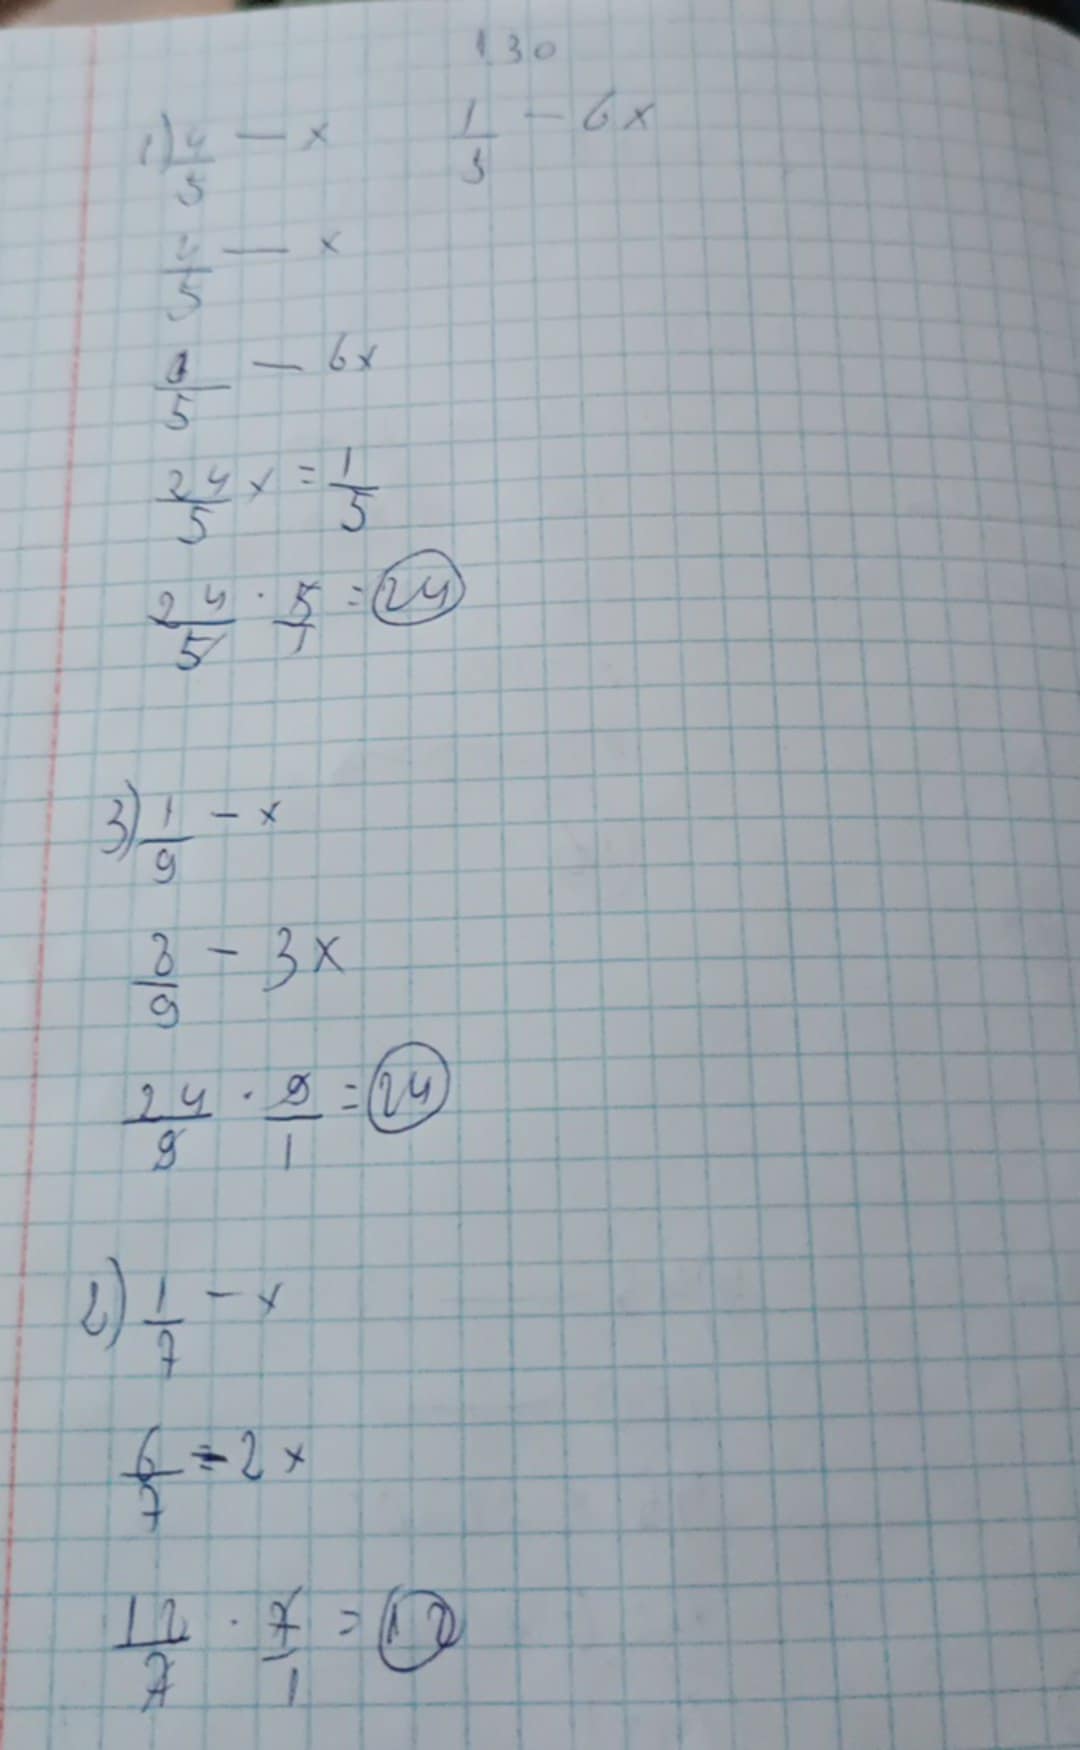 130
1) 4/5 — x    1/5 — 6x
4/5 — x
1/5 — 6x
24/5 x = 1/5
24/5 · 5/1 = 24
3) 1/9 - x
8/9 - 3x
24/9 · 9/1 = 24
2) 1/7 - x
6/7 = 2x
12/7 · 7/1 = 12